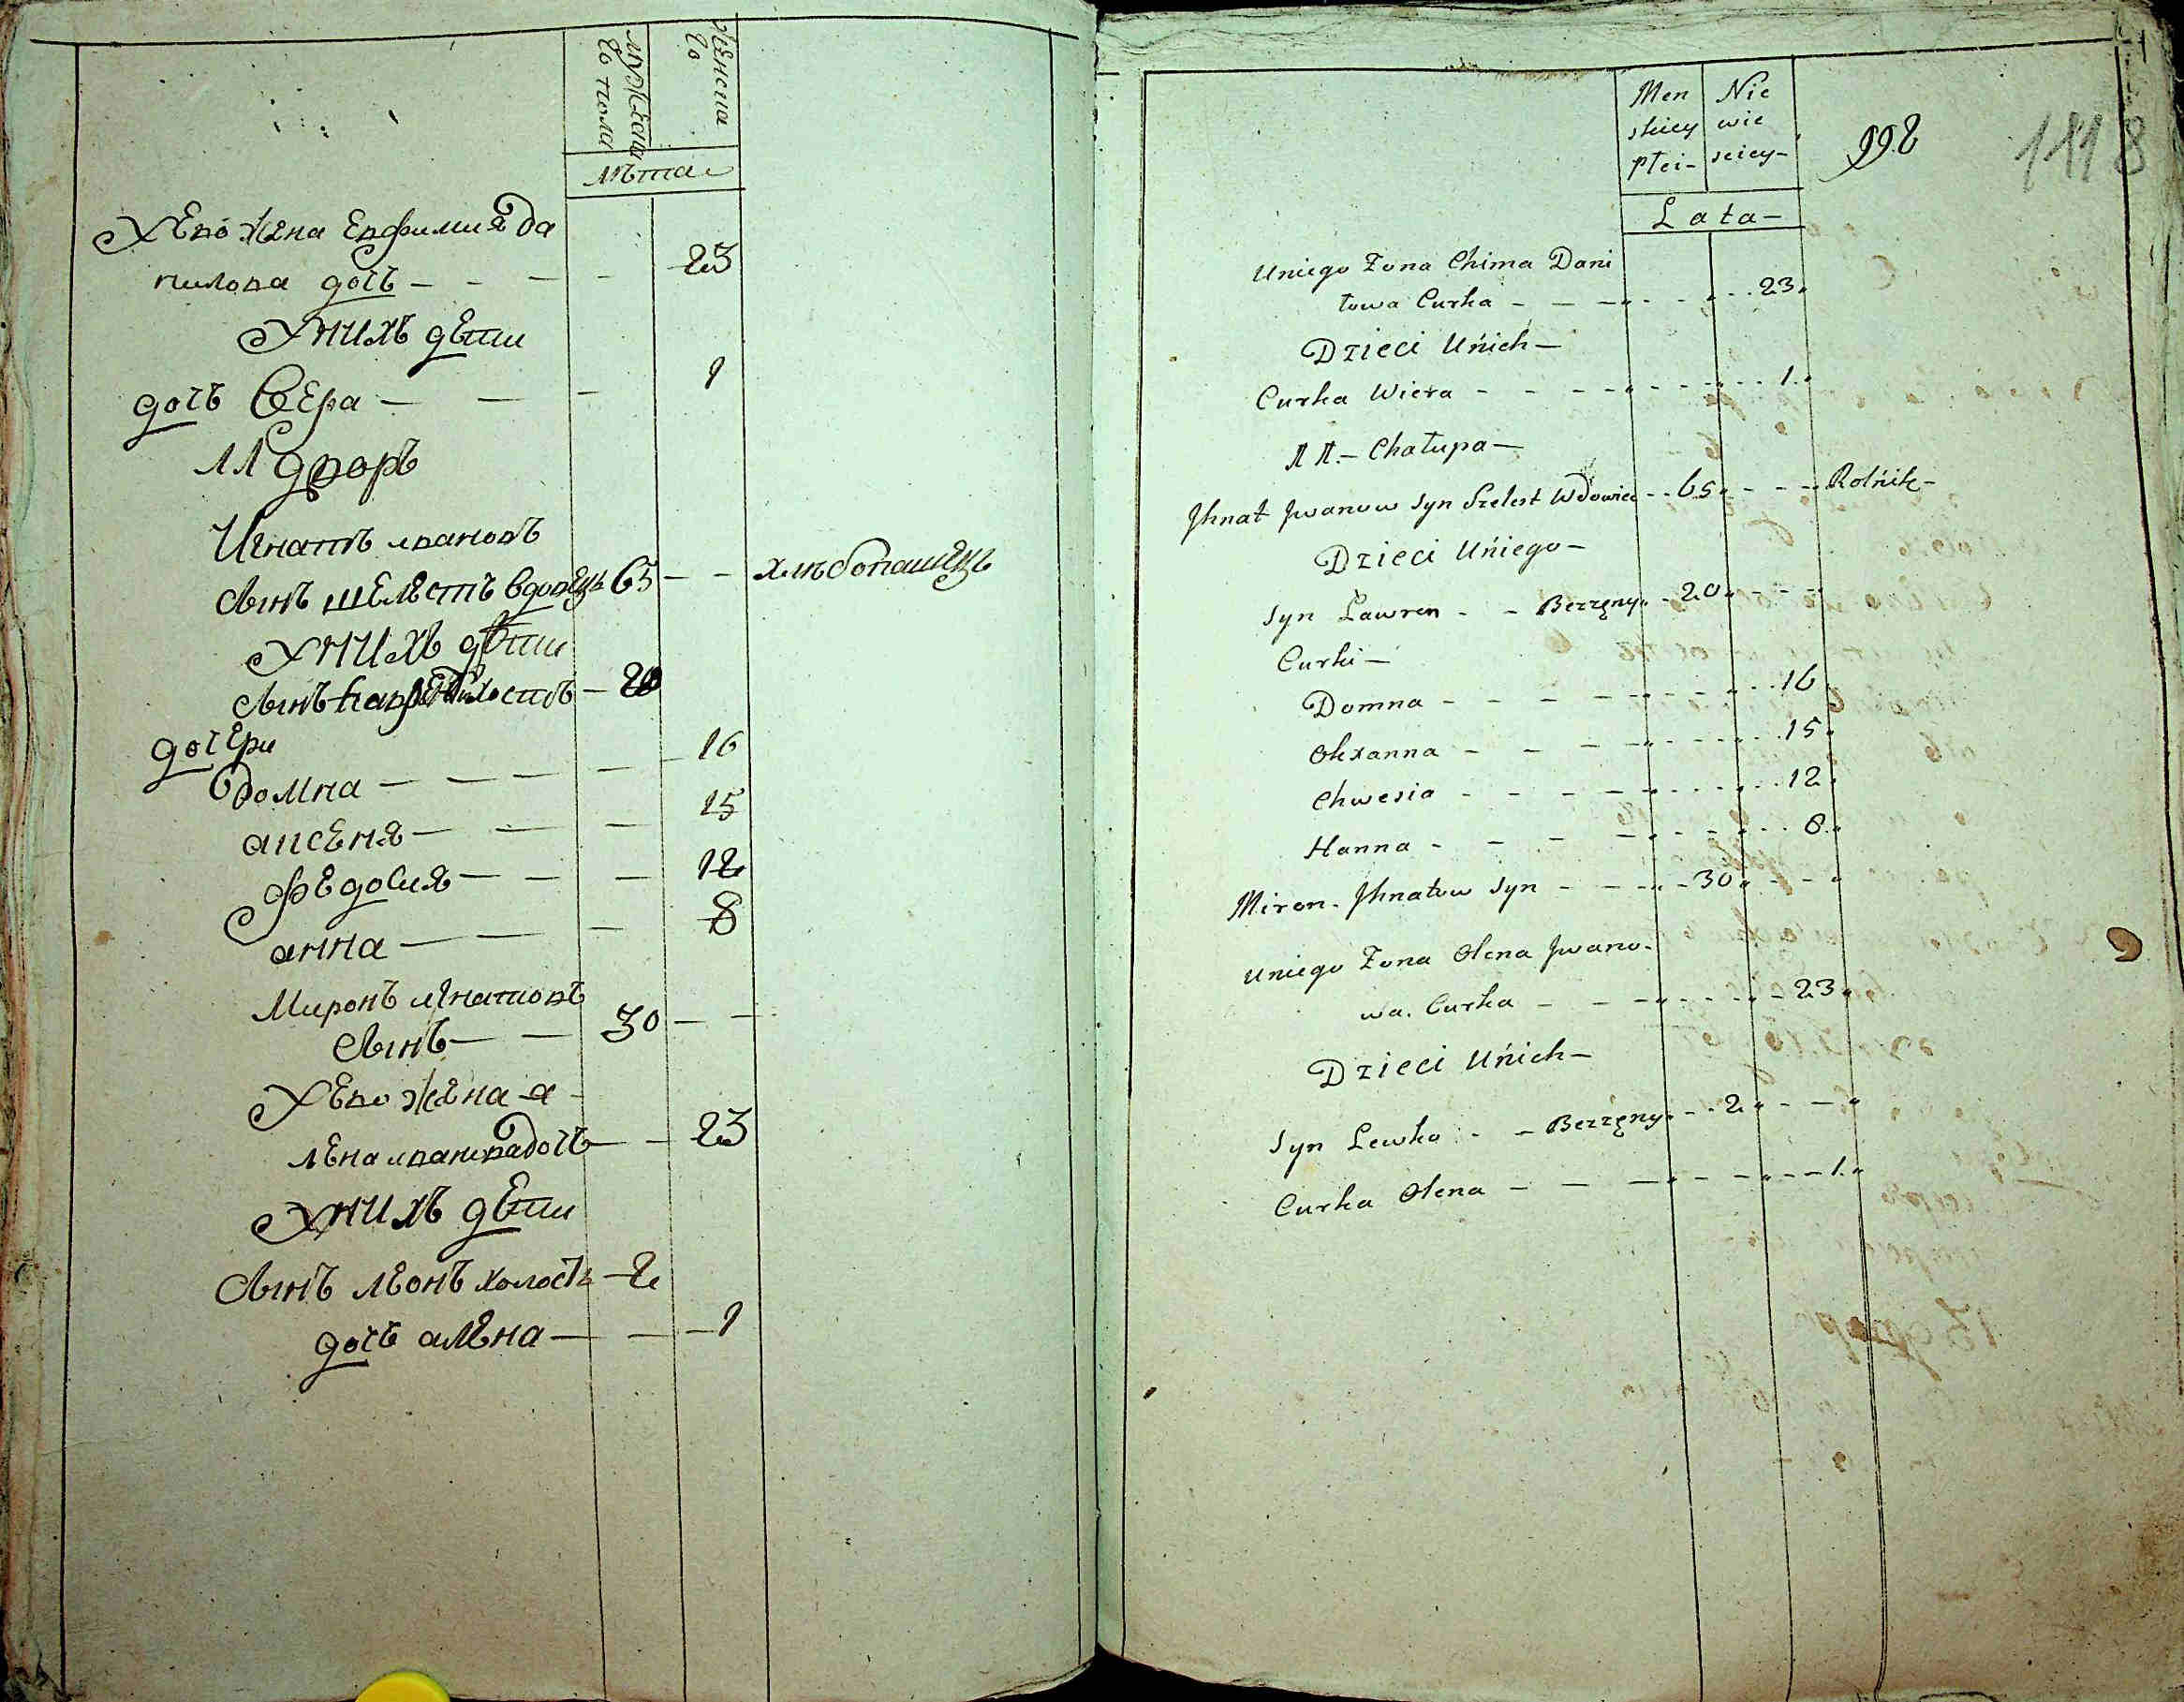 мужеска
го пола
женска
го
лѣта
У Его жена Евфимия да
нилова дочь - - - - 23
У нихъ дети
дочь Вера - - - 1
11 дворъ
Игнатъ ивановъ
сынъ шелестъ вдовецъ 65 - - хлѣбопашецъ
У нихъ дети
сынъ - 20
дочери
домна - - - - 16
аксеня - - - 15
федосия - - - 12
анна - - - 8
Миронъ игнатовъ
сынъ - - 30 - -
У Его жена а-
лена иванова дочь - - 23
У нихъ дети
сынъ леонъ холостъ - 2
дочь алена - - - 1
Men
skiey
Płci -
Nie
wie
sciey -
998
1118
Lata -
Uniego Zona Chima Dani
łowa Curka - - - - - 23.
Dzieci Unich -
Curka Wiera - - - - - 1.
11. - Chałupa -
Jhnat Jwanow Syn Szelest Wdowiec - - 65 - - - Rolnik -
Dzieci Uniego -
Syn Ławren - - Bezzęny - 20 - - -
Curki -
Domna - - - - - - 16
Oksanna - - - - - 15
Chwesia - - - - - 12
Hanna - - - - - 8
Miron Jhnatow Syn - - - 30 - - -
Uniego Zona Olena Jwano-
wa Curka - - - - - 23
Dzieci Unich -
Syn Lewko - - Bezzęny - - 2 - - -
Curka Olena - - - - - 1.